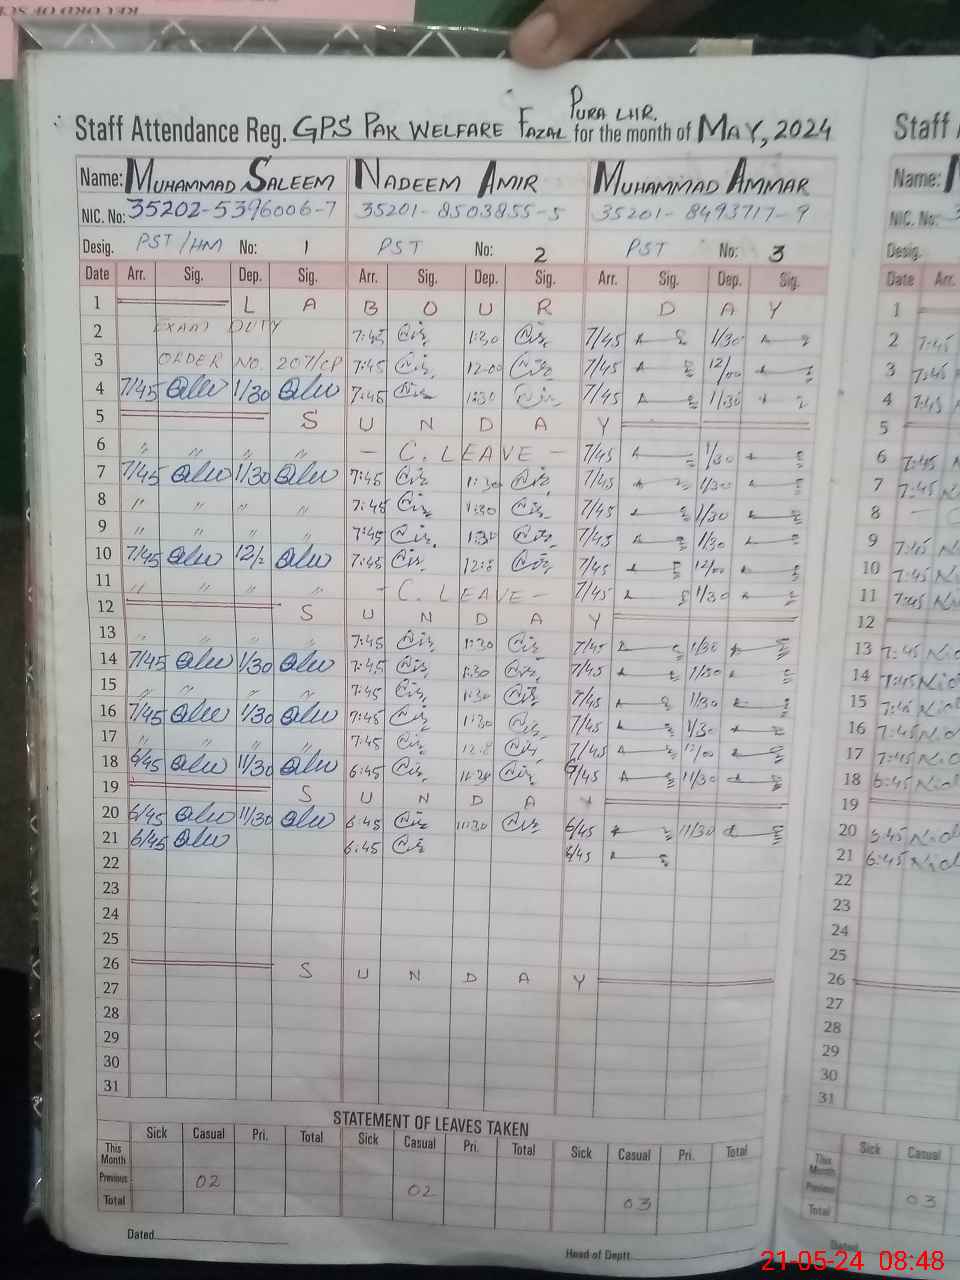 RECORD OF SC
Staff Attendance Reg. GPS PAK WELFARE FAZAL PURA LHR. for the month of MAY, 2024
Name: MUHAMMAD SALEEM NADEEM AMIR MUHAMMAD AMMAR
NIC. No: 35202-5396006-7 35201-8503855-5 35201-8493717-9
Desig. PST/HM No: 1 PST No: 2 PST No: 3
Date Arr. Sig. Dep. Sig. Arr. Sig. Dep. Sig. Arr. Sig. Dep. Sig.
1 L A B O U R D A Y
2 EXAM DUTY 7:45 1:30 7/45 1/30
3 ORDER NO. 207/CP 7:45 12:00 7/45 12/00
4 7/45 1/30 7:45 1:30 7/45 1/30
5 S U N D A Y
6 〃 〃 〃 〃 - C. LEAVE - 7/45 1/30
7 7/45 1/30 7:45 1:30 7/45 1/30
8 〃 〃 〃 〃 7:45 1:30 7/45 1/30
9 〃 〃 〃 〃 7:45 1:30 7/45 1/30
10 7/45 7:45 7/45 12/00
11 〃 〃 〃 〃 - C. LEAVE - 7/45 1/30
12 S U N D A Y
13 〃 〃 〃 〃 7:45 1:30 7/45 1/30
14 7/45 1/30 7:45 1:30 7/45 1/30
15 〃 〃 〃 〃 7:45 1:30 7/45 1/30
16 7/45 1/30 7:45 1:30 7/45 1/30
17 〃 〃 〃 〃 7:45 7/45 12/00
18 6/45 11/30 6:45 6/45 11/30
19 S U N D A Y
20 6/45 11/30 6:45 11:30 6/45 11/30
21 6/45 6:45 6/45
22
23
24
25
26 S U N D A Y
27
28
29
30
31
STATEMENT OF LEAVES TAKEN
Sick Casual Pri. Total Sick Casual Pri. Total Sick Casual Pri. Total
This Month
Previous 02 02 03
Total
Dated
Head of Deptt.
Staff
Name:
NIC. No:
Desig.
Date Arr.
1
2 7:45
3 7:45
4 7:45
5
6 7:45
7 7:45
8
9 7:45
10 7:45
11 7:45
12
13 7:45
14 7:45
15 7:45
16 7:45
17 7:45
18 6:45
19
20
21 6:45
22
23
24
25
26
27
28
29
30
31
Sick Casual
This Month
Previous 03
Total
Dated
21-05-24 08:48